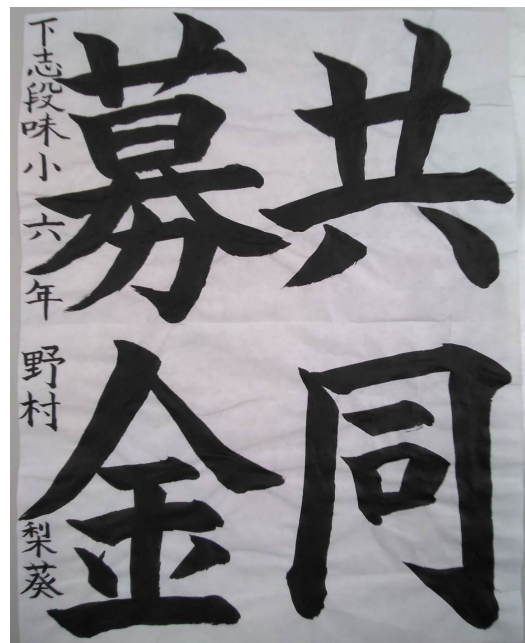 共同
募金
下志段味小六年野村梨葵